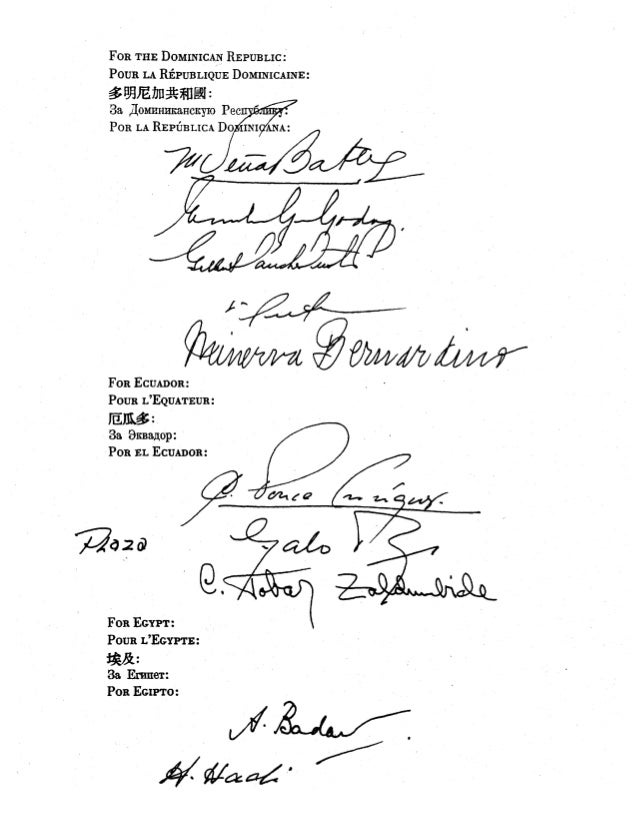 FOR THE DOMINICAN REPUBLIC:
POUR LA RÉPUBLIQUE DOMINICAINE:
多明尼加共和國:
За Доминиканскую Республику:
POR LA REPÚBLICA DOMINICANA:
M Peña Batlle
Minerva Bernardino
FOR ECUADOR:
POUR L'EQUATEUR:
厄瓜多:
За Эквадор:
POR EL ECUADOR:
C. Ponce Enríquez.
Plaza
Galo
C. Tobar Zaldumbide
FOR EGYPT:
POUR L'EGYPTE:
埃及:
За Египет:
POR EGIPTO:
A. Badawi
H. Hadi